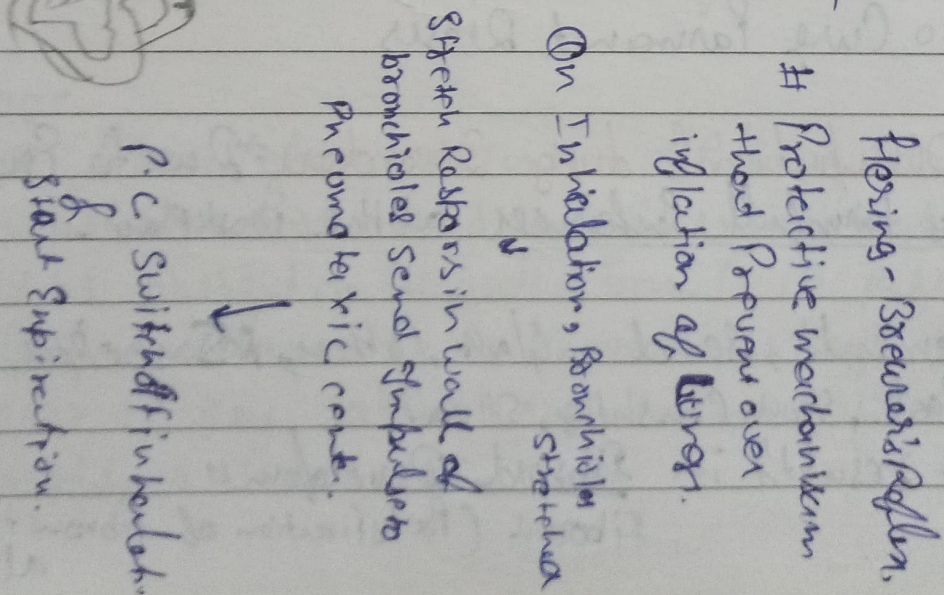 Hering-Breuer's Reflex.
# Protective machanism
that Prevent over
inflation of lungs.
On Inhalation, Bronchioles
stretched
↓
stretch Resters in wall of
bronchioles send Impulse to
Pneumotaxic cent.
↓
P.C. Switch off inhalat.
& start Expiration.